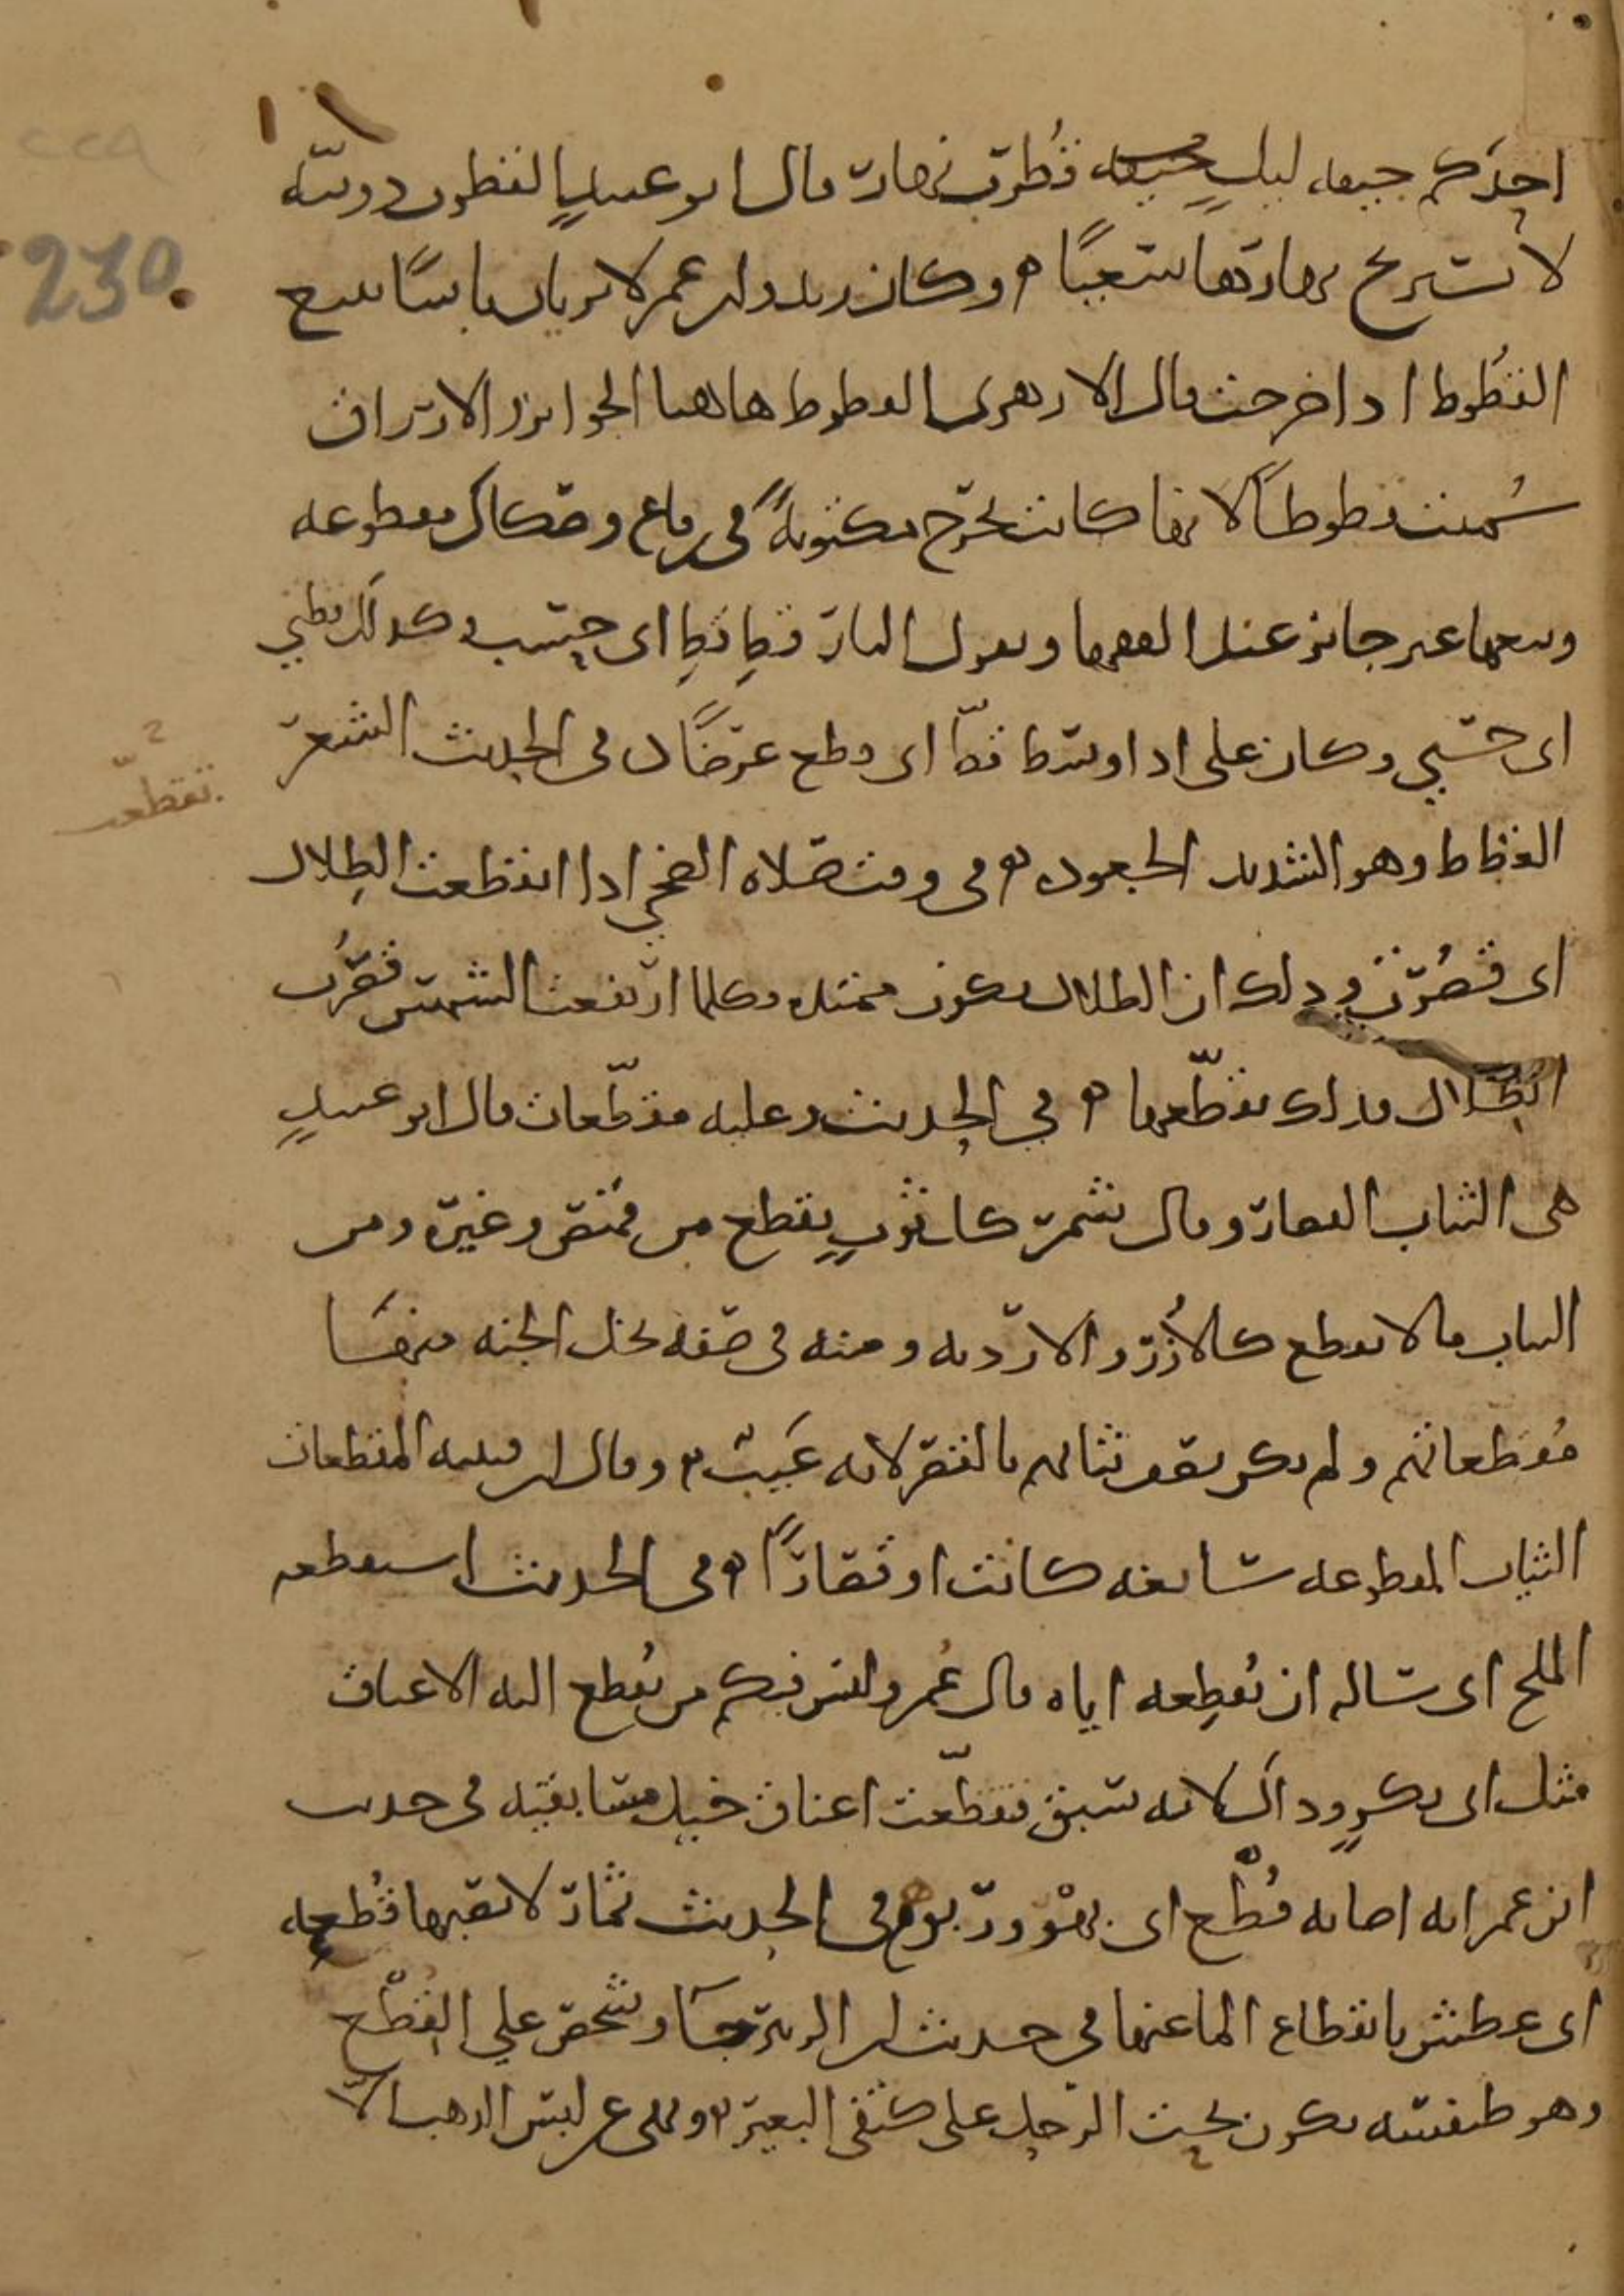 احدكم جيفه ليلٍ قُطرُبَ نهار قال ابو عبيدٍ القطرب دويبّه
لا تستريح نهارها سعيًا ه وكان زيد وابن عمر لا يريان باسًا ببيع
القُطوط اذا خرجت قال الازهرى القطوط هاهنا الجوايز والارزاق
سُميت قطوطًا لانها كانت تخرج مكتوبةً فى رقاع وصكاك مقطوعه
وبيعها غير جايز عند الفقها ويقول النار قطِ قطِ اى حسب وكذلك قطني
اى حسبي وكان على اذا وسّط قطّ اى قطع عرضًا فى الحديث الشعر
تقطّعه
القطاط وهو الشديد الجعوده فى وقت صلاه الضحي اذا انقطعت الظِلال
اى قصُرت وذلك ان الظلال تكون ممتده وكلما ارتفعت الشمس قصُرت
الظلال فذلك تقطّعها ه في الحديث وعليه مقطّعات قال ابو عبيدٍ
هى الثياب القصار وقال شمر كل ثوبٍ يقطع من قميص وغيره ومن
الثياب ما لا يقطع كالأزُر والارديه ومنه فى صفه نخل الجنه منها
مُقطعاتهم ولم يكن يصف ثيابهم بالقصر لانه عَيبٌ ه وقال ابن قتيبه المقطعات
الثياب المقطوعه سابغه كانت او قصارًا ه فى الحديث استقطعه
الملح اى ساله ان يُقطِعه اياه قال عُمر وليس فيكم من تُقطع اليه الاعناق
مثل ابى بكرٍ وذاك لانه سبق فتقطّعت اعناق خيل مسابقيه فى حديث
ابن عمر انه اصابه قُطْع اى بهْر وربو ه فى الحديث ثمار لا تصيبها قُطعه
اى عطش بانقطاع الما عنها في حديث ابن الزبير فجآ وشخص علي القِطْع
وهو طنفسه تكون تحت الرحل على كتفى البعير ه ونهى عن لبس الذهب الاّ
230